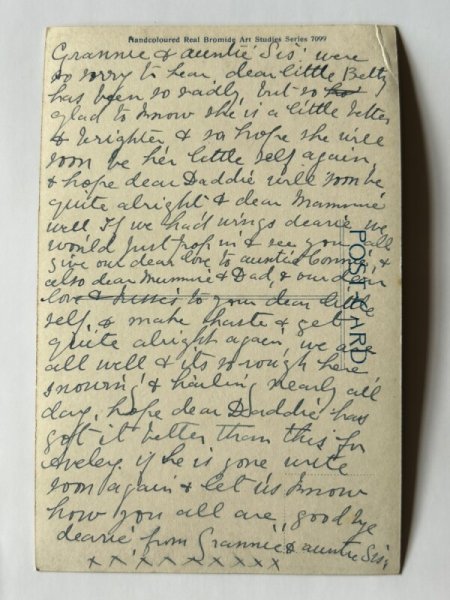 Handcoloured Real Bromide Art Studies Series 7099
Grannie & auntie Sis, were
so sorry to hear, dear little Betty
has been so sadly, but so
glad to know she is a little better
& brighter & so hope she will
soon be her little self again,
& hope dear Daddie will soon be
quite alright & dear Mammie
well, If we had wings dearie we
would just pop in & see you all
give our dear love to auntie &
also dear Mummie & Dad, & our dear
love & kisses to your dear little
self, & make haste & get
quite alright again, we are
all well & its so rough here
snowing & hailing nearly all
day, hope dear Daddie has
got it better than this for
Aveley, if he is gone write
soon again & let us know
how you all are, good bye
dearie, from Grannie & auntie Sis,
x x x x x x x x x x
POST CARD